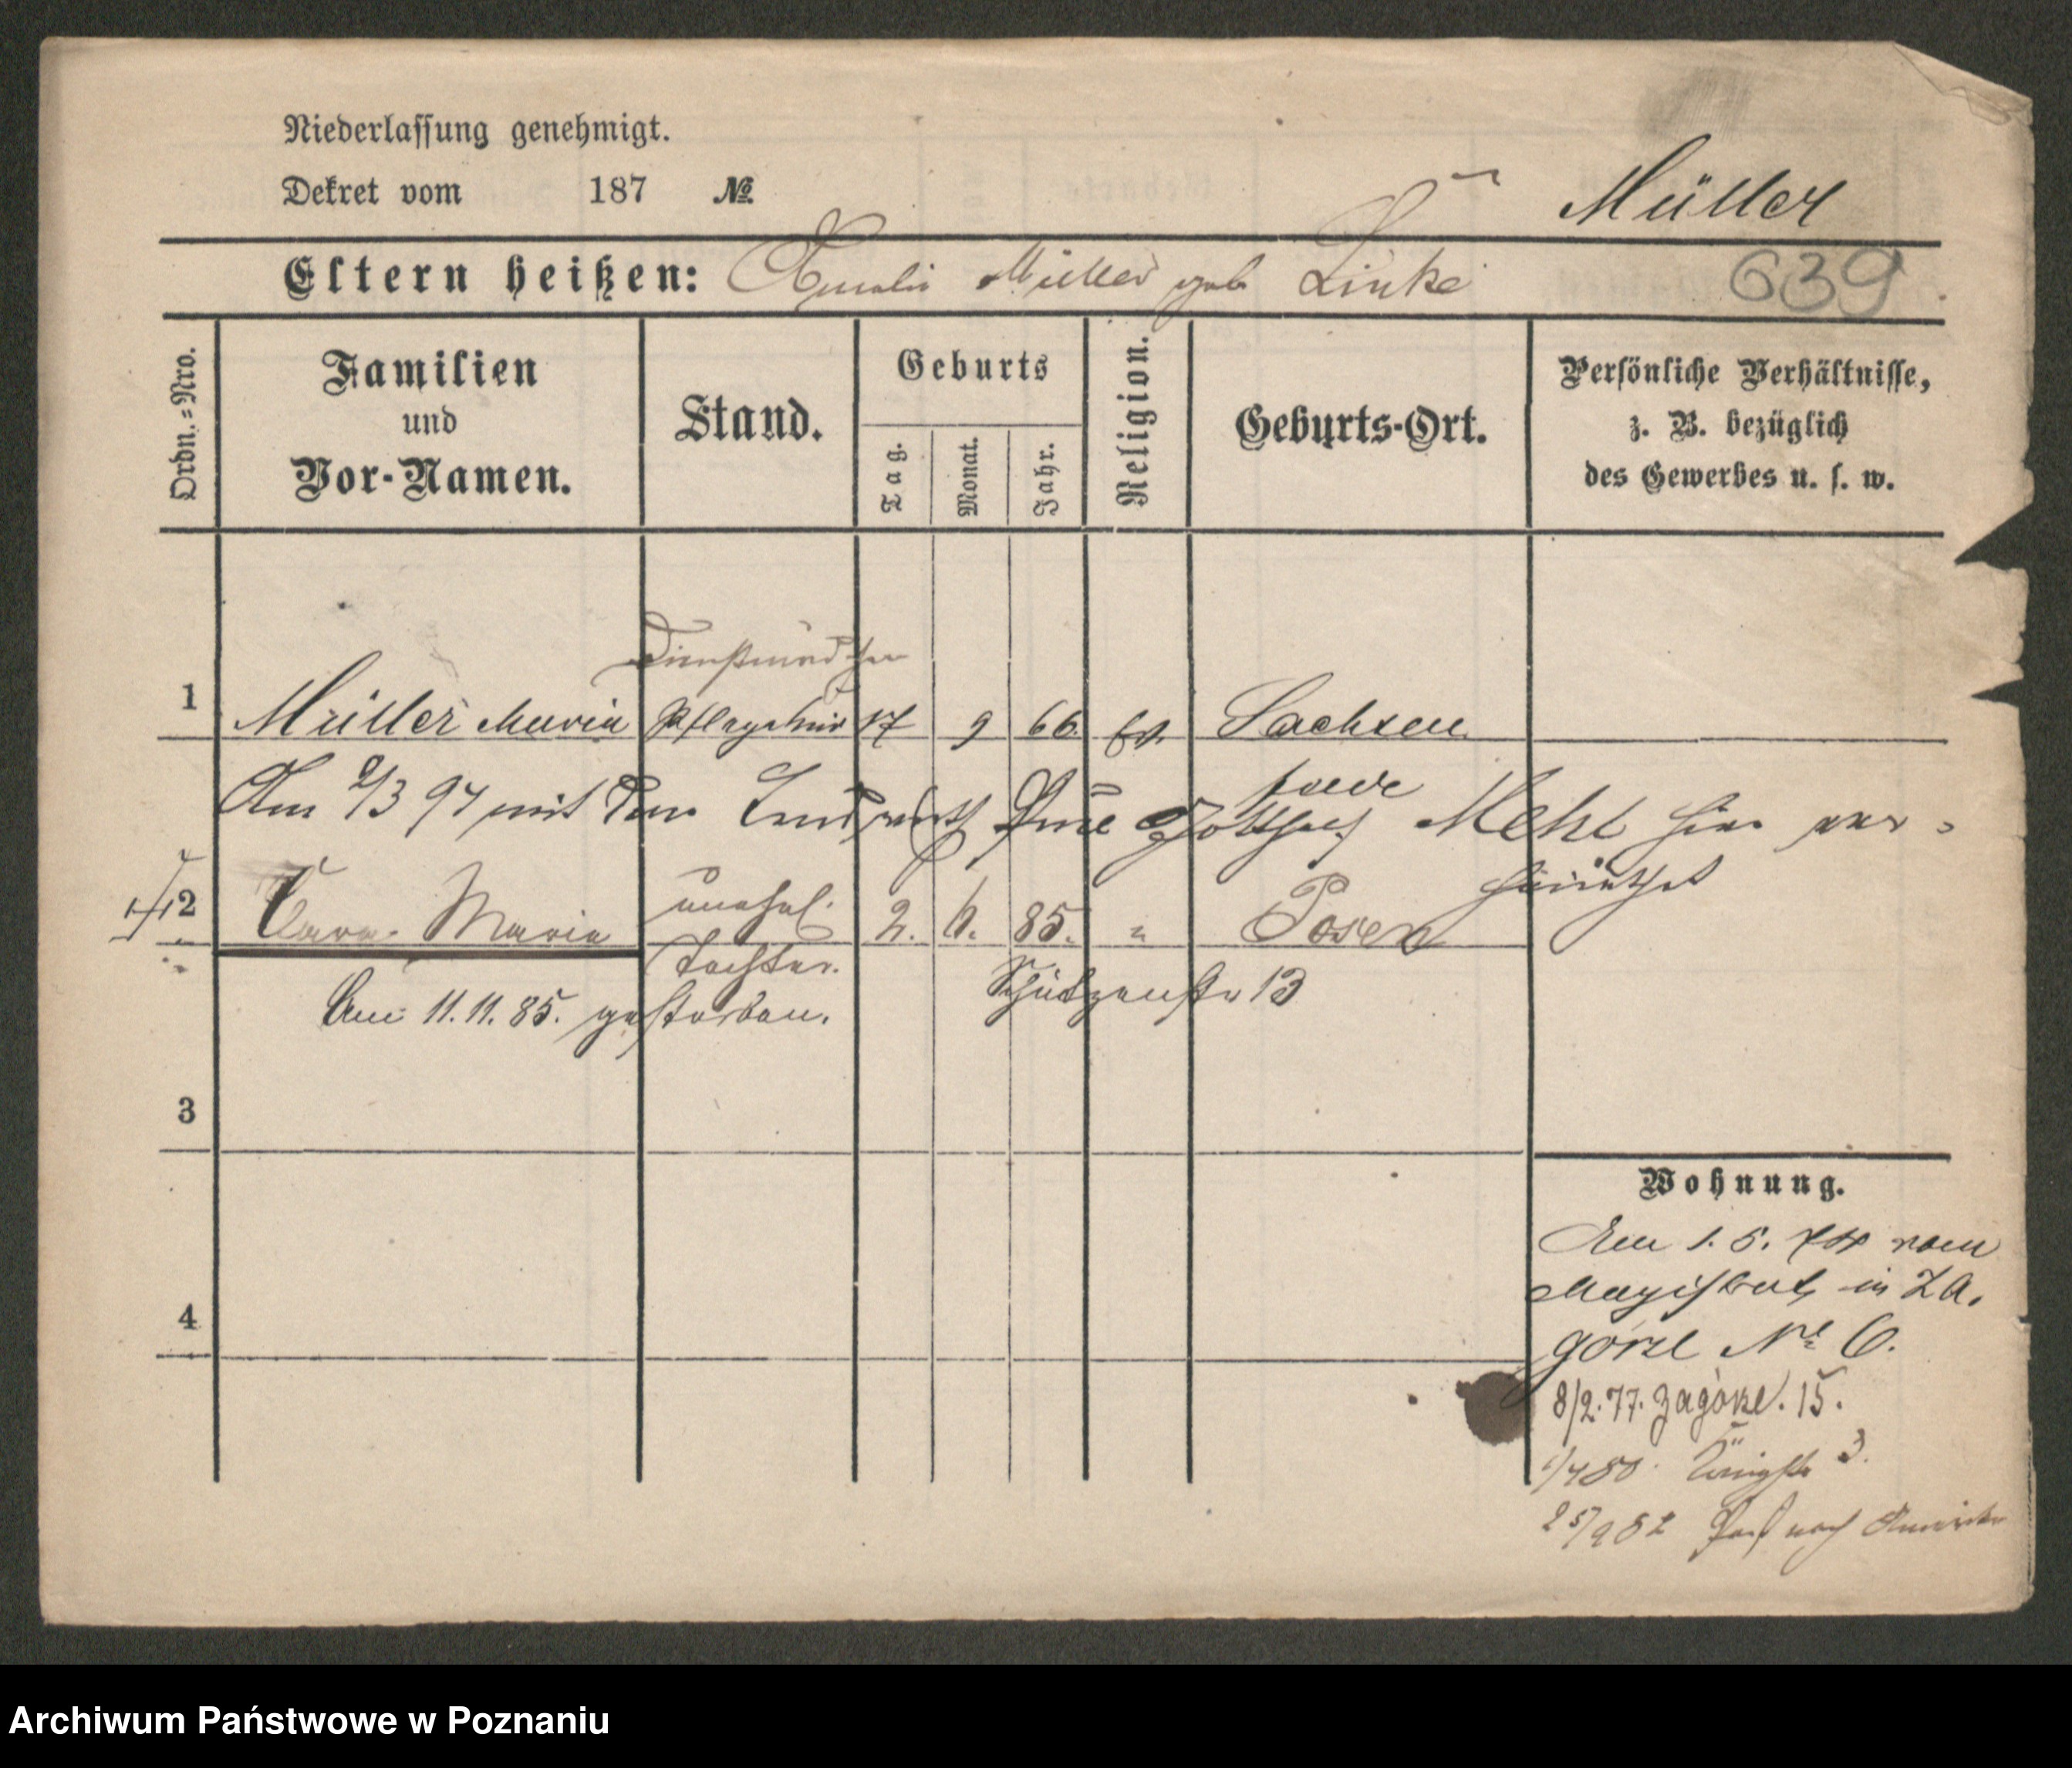 Niederlassung genehmigt.
Dekret vom 187 №
Müller
Eltern heißen: Amalie Müller geb Linke
639
Ordn.-Nro.
Familien
und
Vor-Namen.
Stand.
Geburts
Tag.
Monat.
Jahr.
Religion.
Geburts-Ort.
Persönliche Verhältnisse,
z. B. bezüglich
des Gewerbes u. s. w.
Dienstmädchen
1 Müller Maria Pflegekind 17 9 66. ev. Sachsen
Am 2/3 94 mit dem Landwirth Gotthelf Mehl hier ver-
heirathet
2 Clara Maria unehel. 2. 6. 85. " Posen
Tochter.
Schützenstr 13
Am 11.11.85. gestorben.
3
4
Wohnung.
Am 1. 5. vom
Magistrat in Za.
górze № 6.
8/2.77. Zagórze. 15.
1/4 80. Königstr 3.
25/9 82 Paß nach Amerika